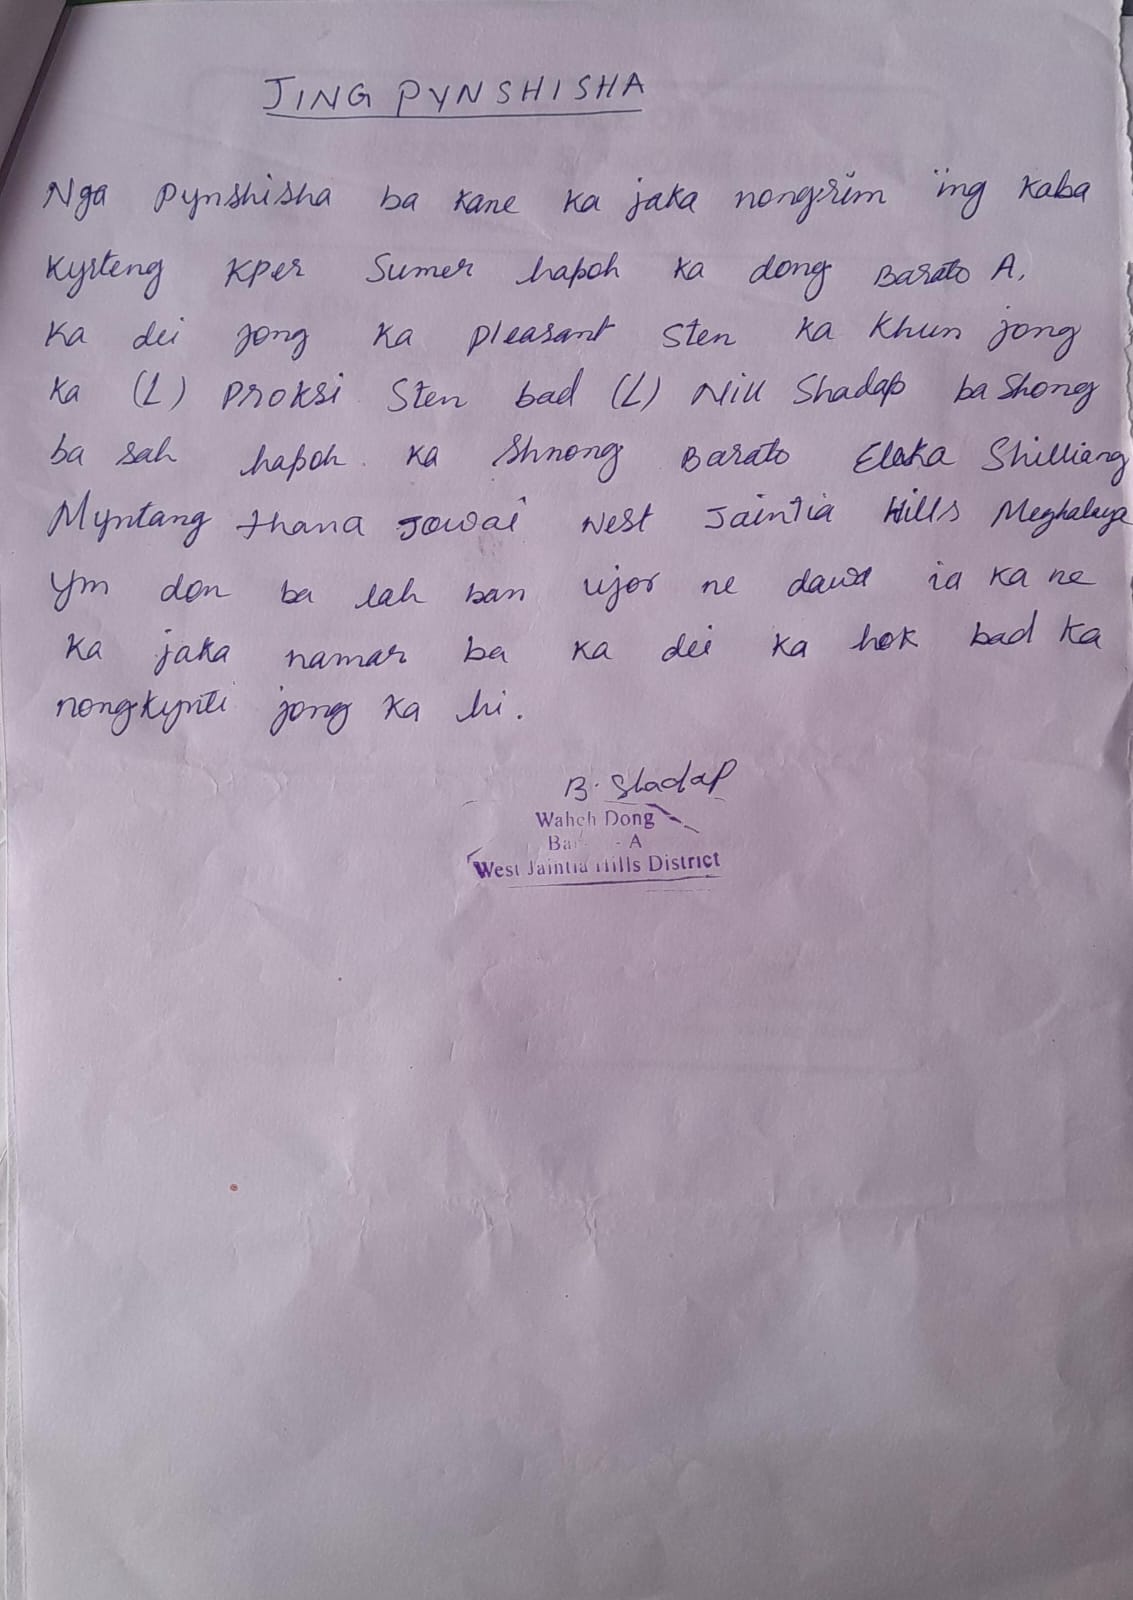 JINGPYNSHISHA
Nga Pynshisha ba kane ka jaka nongrim ïing kaba
Kyrteng Kper Sumer hapoh ka dong Barato A.
Ka dei jong ka Pleasant Sten ka Khun jong
ka (L) Proksi Sten bad (L) Nill Shadap ba Shong
ba sah hapoh ka Shnong Barato Elaka Shilliang
Myntang thana Jowai West Jaintia Hills Meghalaya
Ym don ba lah ban ujor ne dawa ia ka ne
ka jaka namar ba ka dei ka hok bad ka
nongkynti jong ka hi.
B. Shadap
Waheh Dong
- A
West Jaintia Hills District